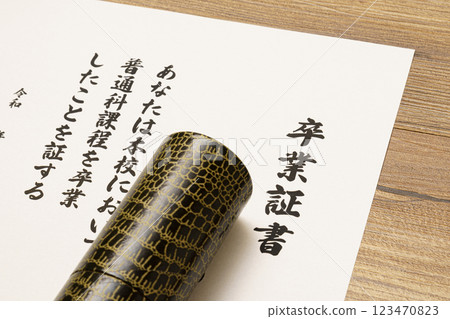 卒業証書
あなたは本校におい
普通科課程を卒業
したことを証する
令和
123470823